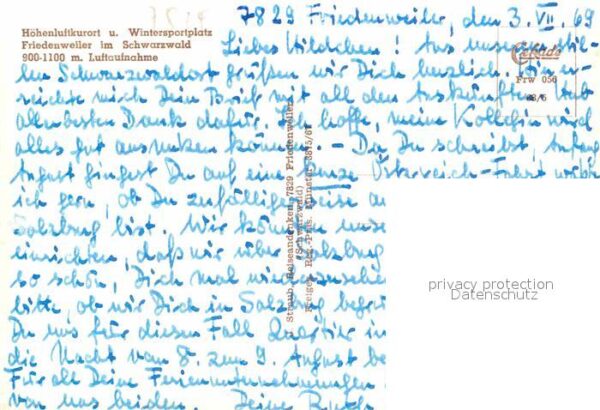 7829
Höhenluftkurort u. Wintersportplatz
Friedenweiler im Schwarzwald
900-1100 m. Luftaufnahme
7829 Friedenweiler, den 3. VII. 69
Liebes Hildchen! Aus unserem stil-
len Schwarzwaldort grüßen wir Dich herzlich. Hier er-
reichte mich Dein Brief mit all den Auskünften. Hab
allerbesten Dank dafür. Ich hoffe, meine Kollegin wird
alles gut ausnützen können. - Da Du schreibst, Anfang
August gingest Du auf eine kurze Österreich-Fahrt
ich gern, ob Du zufälligerweise an
Salzburg bist. Wir könnten unse
einrichten, daß wir über Salzburg
so schön, Dich mal wiederzusehen
bitte, ob wir Dich in Salzburg
Du uns für diesen Fall Quartier in
die Nacht vom 8. zum 9. August be
Für all Deine Ferienunternehmungen
von uns beiden. Deine Ruth
Cekade
Frw 056
Straub, Reiseandenken, 7829 Friedenweiler
(Schwarzwald)
Freigeg. Reg.-Präs. Münster
privacy protection
Datenschutz